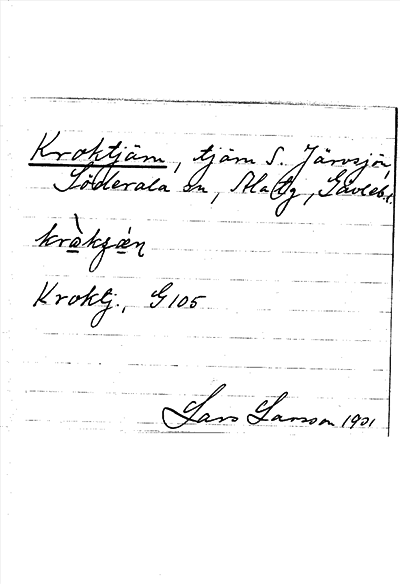 Kroktjärn, tjärn S. Järvsjön,
Söderala sn, Ala tg, Gävleb.l.
Kroktj., G 105
Lars Larsson 1901